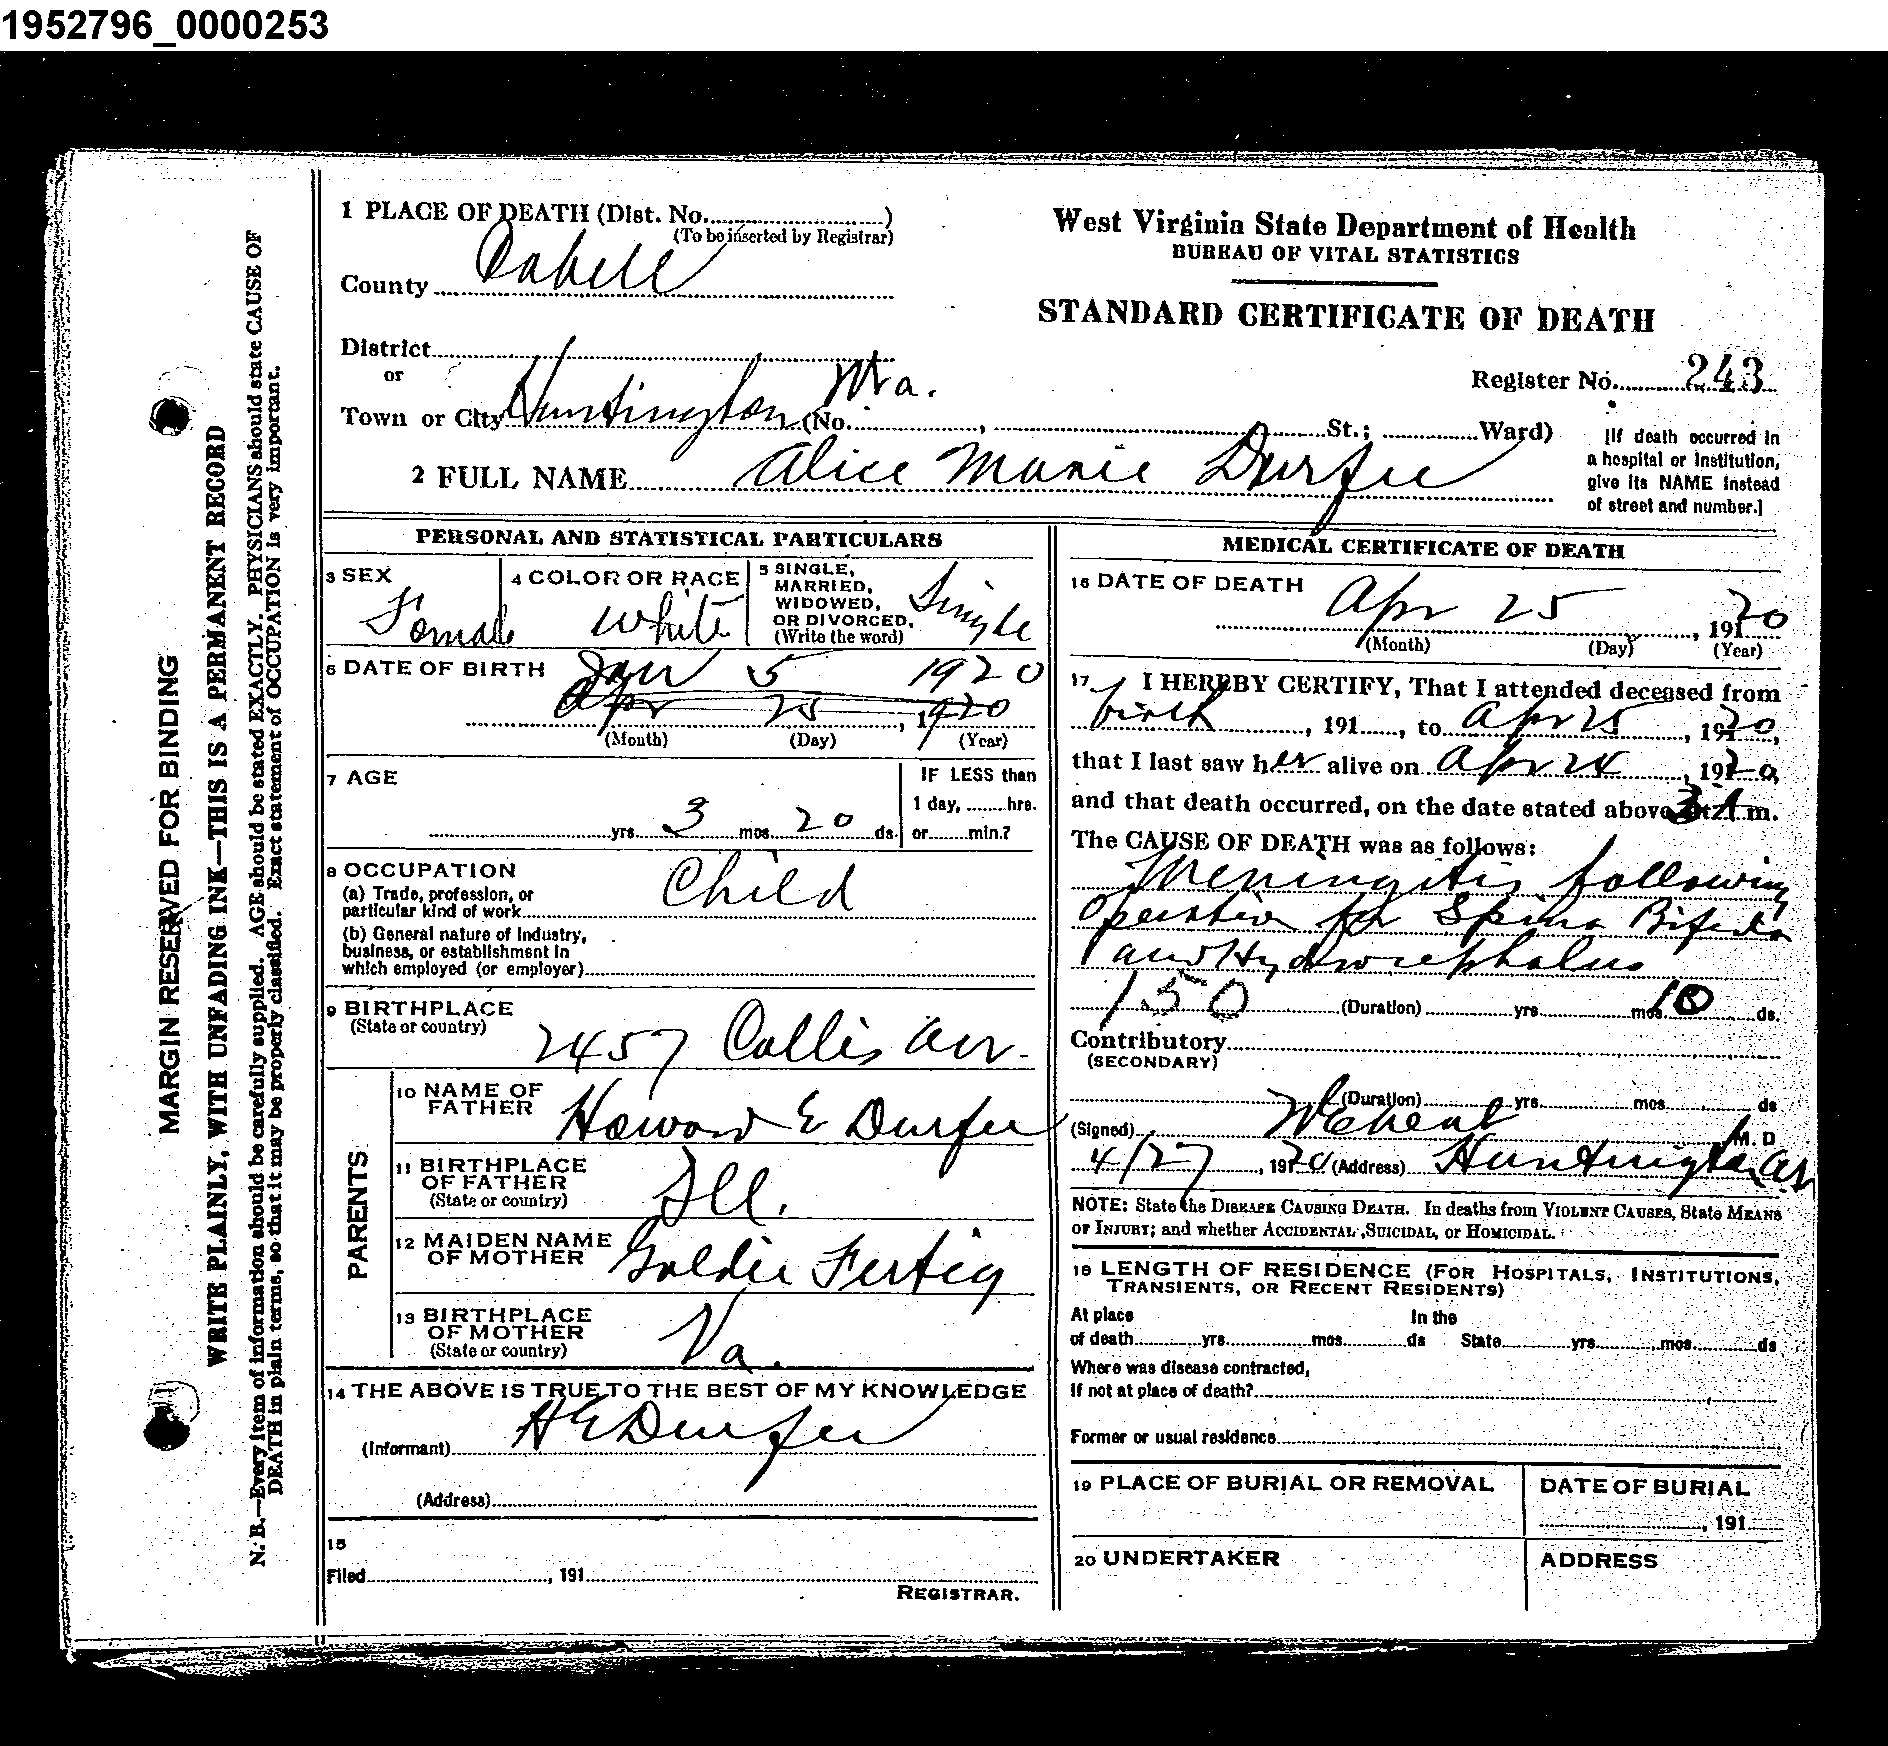 1952796_0000253
1 PLACE OF DEATH (Dist. No. )
(To be inserted by Registrar)
County Cabell
District
or
Town or City Huntington W Va. (No. , St.; Ward)
2 FULL NAME Alice Marie Durfee
West Virginia State Department of Health
BUREAU OF VITAL STATISTICS
STANDARD CERTIFICATE OF DEATH
Register No. 243
[If death occurred in
a hospital or institution,
give its NAME instead
of street and number.]
PERSONAL AND STATISTICAL PARTICULARS
3 SEX
Female
4 COLOR OR RACE
White
5 SINGLE,
MARRIED,
WIDOWED,
OR DIVORCED,
(Write the word)
Single
6 DATE OF BIRTH Jan 5 1920
Apr 25, 1920
(Month) (Day) (Year)
7 AGE
yrs. 3 mos. 20 ds.
IF LESS than
1 day, hrs.
or min.?
8 OCCUPATION
(a) Trade, profession, or
particular kind of work Child
(b) General nature of industry,
business, or establishment in
which employed (or employer)
9 BIRTHPLACE
(State or country)
2457 Collis Av.
PARENTS
10 NAME OF
FATHER Howard E Durfee
11 BIRTHPLACE
OF FATHER
(State or country)
Ill.
12 MAIDEN NAME
OF MOTHER Goldie Fertig
13 BIRTHPLACE
OF MOTHER
(State or country)
Va.
14 THE ABOVE IS TRUE TO THE BEST OF MY KNOWLEDGE
(Informant) H E Durfee
(Address)
15
Filed , 191
REGISTRAR.
MEDICAL CERTIFICATE OF DEATH
16 DATE OF DEATH
Apr 25, 1920
(Month) (Day) (Year)
17 I HEREBY CERTIFY, That I attended deceased from
birth, 191 , to Apr 25, 1920,
that I last saw her alive on Apr 24, 1920,
and that death occurred, on the date stated above, at m.
The CAUSE OF DEATH was as follows:
Meningitis following
operation for Spina Bifida
and Hydrocephalus
150 (Duration) yrs. mos. 10 ds.
Contributory
(SECONDARY)
(Duration) yrs. mos. ds.
(Signed) M. D
4/27, 1920 (Address) Huntington
NOTE: State the DISEASE CAUSING DEATH. In deaths from VIOLENT CAUSES, State MEANS
OF INJURY; and whether ACCIDENTAL, SUICIDAL, or HOMICIDAL.
18 LENGTH OF RESIDENCE (FOR HOSPITALS, INSTITUTIONS,
TRANSIENTS, OR RECENT RESIDENTS)
At place In the
of death yrs. mos. ds State yrs. mos. ds
Where was disease contracted,
If not at place of death?
Former or usual residence
19 PLACE OF BURIAL OR REMOVAL
DATE OF BURIAL
, 191
20 UNDERTAKER
ADDRESS
MARGIN RESERVED FOR BINDING
WRITE PLAINLY, WITH UNFADING INK—THIS IS A PERMANENT RECORD
N. B.—Every item of information should be carefully supplied. AGE should be stated EXACTLY. PHYSICIANS should state CAUSE OF
DEATH in plain terms, so that it may be properly classified. Exact statement of OCCUPATION is very important.